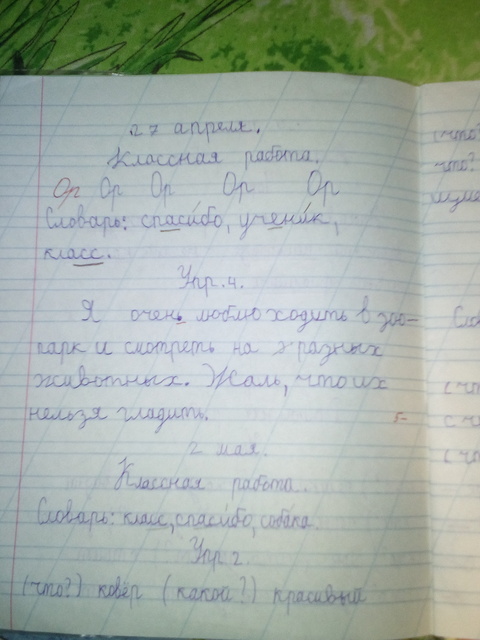 27 апреля.
Классная работа.
Ор Ор Ор Ор Ор
Словарь: спасибо, ученик,
класс.
Упр. 4.
Я очень люблю ходить в зоо-
парк и смотреть на разных
животных. Жаль, что их
нельзя гладить.
5-
2 мая.
Классная работа.
Словарь: класс, спасибо, собака.
Упр 2.
(что?) ковёр (какой?) красивый
(что?
что?